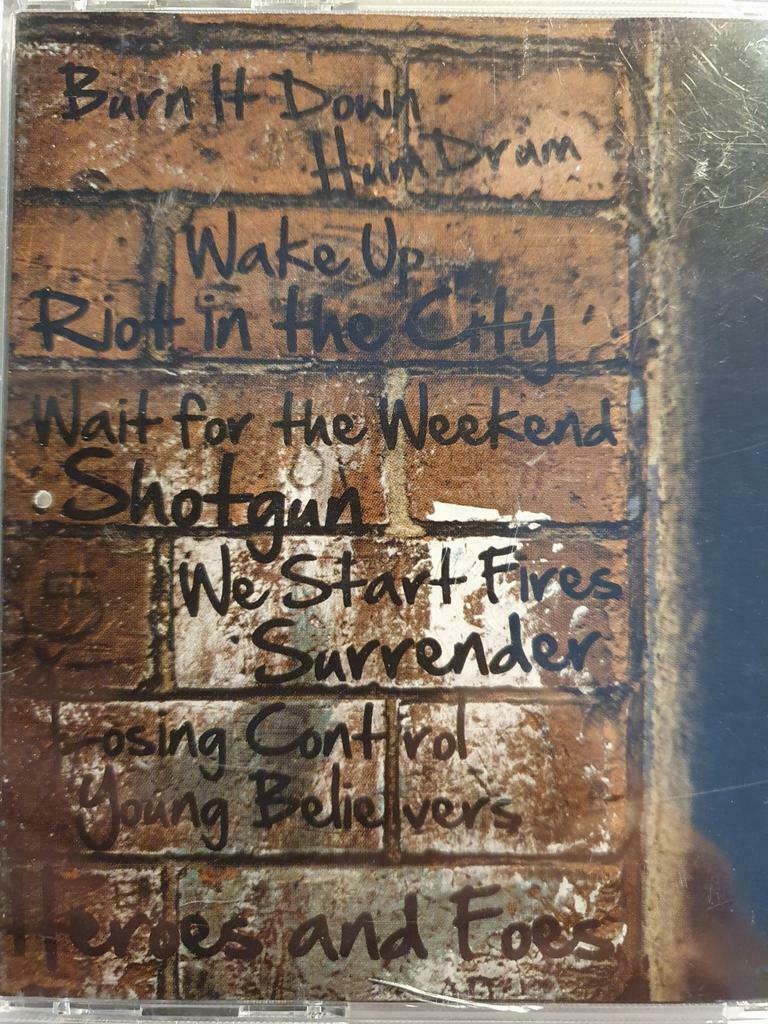 Burn It Down
Hum Drum
Wake Up
Riot in the City
Wait for the Weekend
Shotgun
We Start Fires
Surrender
Losing Control
Young Believers
Heroes and Foes